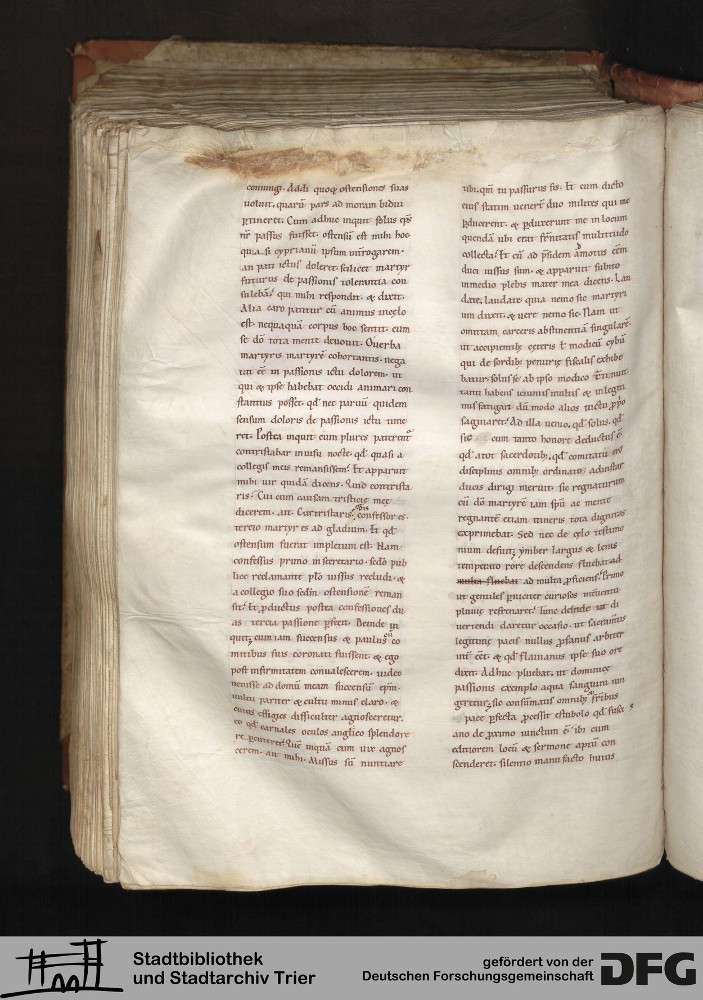 coniungi. Addi quoq; ostensiones suas
uoluit. quarū pars ad moram bidui
ꝑtineret. Cum adhuc inquit solus eps̄
nr̄ passus fuisset. ostensū est mihi hoc
qua si cyprianū ipsum int̄rogarem.
an pati ictus doleret. scilicet martyr
futurus de passionis tolerantia con
sulebā. qui mihi respondit. & dixit.
Alia caro patitur cū animus in celo
est. nequaquā corpus hoc sentit. cum
se dō tota mente deuouit. O uerba
martyris martyrē cohortantis. nega
uit eē in passionis ictu dolorem. ut
qui & ipse habebat occidi animari con
stantius posset. qd̄ nec paruū quidem
sensum doloris de passionis ictu time
ret. Postea inquit cum plures paterent᷑
contristabar in uisu nocte. qd̄ quasi a
collegis meis remansissem. Et apparuit
mihi uir quidā dicens. Quid contrista
ris. Cui cum causam tristicie meę
dicerem. ait. Contristaris. confessor es.
tercio martyr es ad gladium. Et qd̄
ostensum fuerat impletum est. Nam
confessus primo in secretario. sc̄do pub
lice reclamante plo iussus recludi. &
a collegio suo sc̄dm̄ ostensionē reman
sit. Et ꝓductus postea confessiones du
as tercia passione ꝑfecit. Deinde in
quit. cum iam successus & paulus cū co
mitibus suis coronati fuissent. & ego
post infirmitatem conualescerem. uideo
uenisse ad domū meam successū epm̄.
uultu pariter & cultu nimis claro. &
cuius effigies difficulter agnosceretur.
eo qd̄ carnales oculos anglico splendore
re ꝑcuteret. Quē inquā cum uix agnos
cerem. ait mihi. Missus sū nuntiare
tibi. qm̄ tu passurus sis. Et cum dicto
eius statim uenerē duo milites qui me
ꝑducerent. & ꝑduxerunt me in locum
quendā ubi erat fr̄nitatis multitudo
collecta. Et cū ad p̄sidem amotus eēm
duci iussus sum. & apparuit subito
in medio plebis mater mea dicens. Lau
date. laudate. quia nemo sic martyri
um duxit. & uere nemo sic. Nam ut
omittam carceris abstinentiā singularē.
ut accipientib; ceteris ł modicū cybū
qui de sordib; penurię fiscalis exhibe
batur. solus se ab ipso modico
tanti habens ieiuniis multis & in legiti
mis fatigari dū modo alios uictu ꝓpo
saginaret. Ad illa uenio. qd̄ solus. qd̄
sic cum tanto honore deductus ē
qd̄ ator sacerdotib;. qd̄ comitatu eius
disciplinis omnib; ordinato. ad instar
ducis dirigi meruit. sic regnaturum
cū dō martyrē iam spū ac mente
regnantē etiam itineris tota dignitas
exprimebat. Sed nec de cęlo testimo
nium defuit. ymber largus & lenis
temperato rore descendens fluebat ad
multa fluebat ad multa ꝓficiens. Primo
ut gentiles ꝑniciter curiosos inuentu
pluuię refrenaret. tunc deinde ut di
uertendi daretur occasio. ut sacramtis
legitimę pacis nullus ꝓfanus arbiter
int̄ eēt. & qd̄ flauianus ipse suo ore
dixit. Ad hoc pluebat. ut dominicę
passionis exemplo aqua sanguini iun
geretur. sic consūmatis omnib; fribus
pace ꝑfecta. ꝓcessit estabulo qd̄ fuse
ano de ꝓximo iunctum ē. ibi cum
editiorem locū & sermone aptū con
scenderet. silentio manu facto huius
Stadtbibliothek
und Stadtarchiv Trier
gefördert von der
Deutschen Forschungsgemeinschaft
DFG